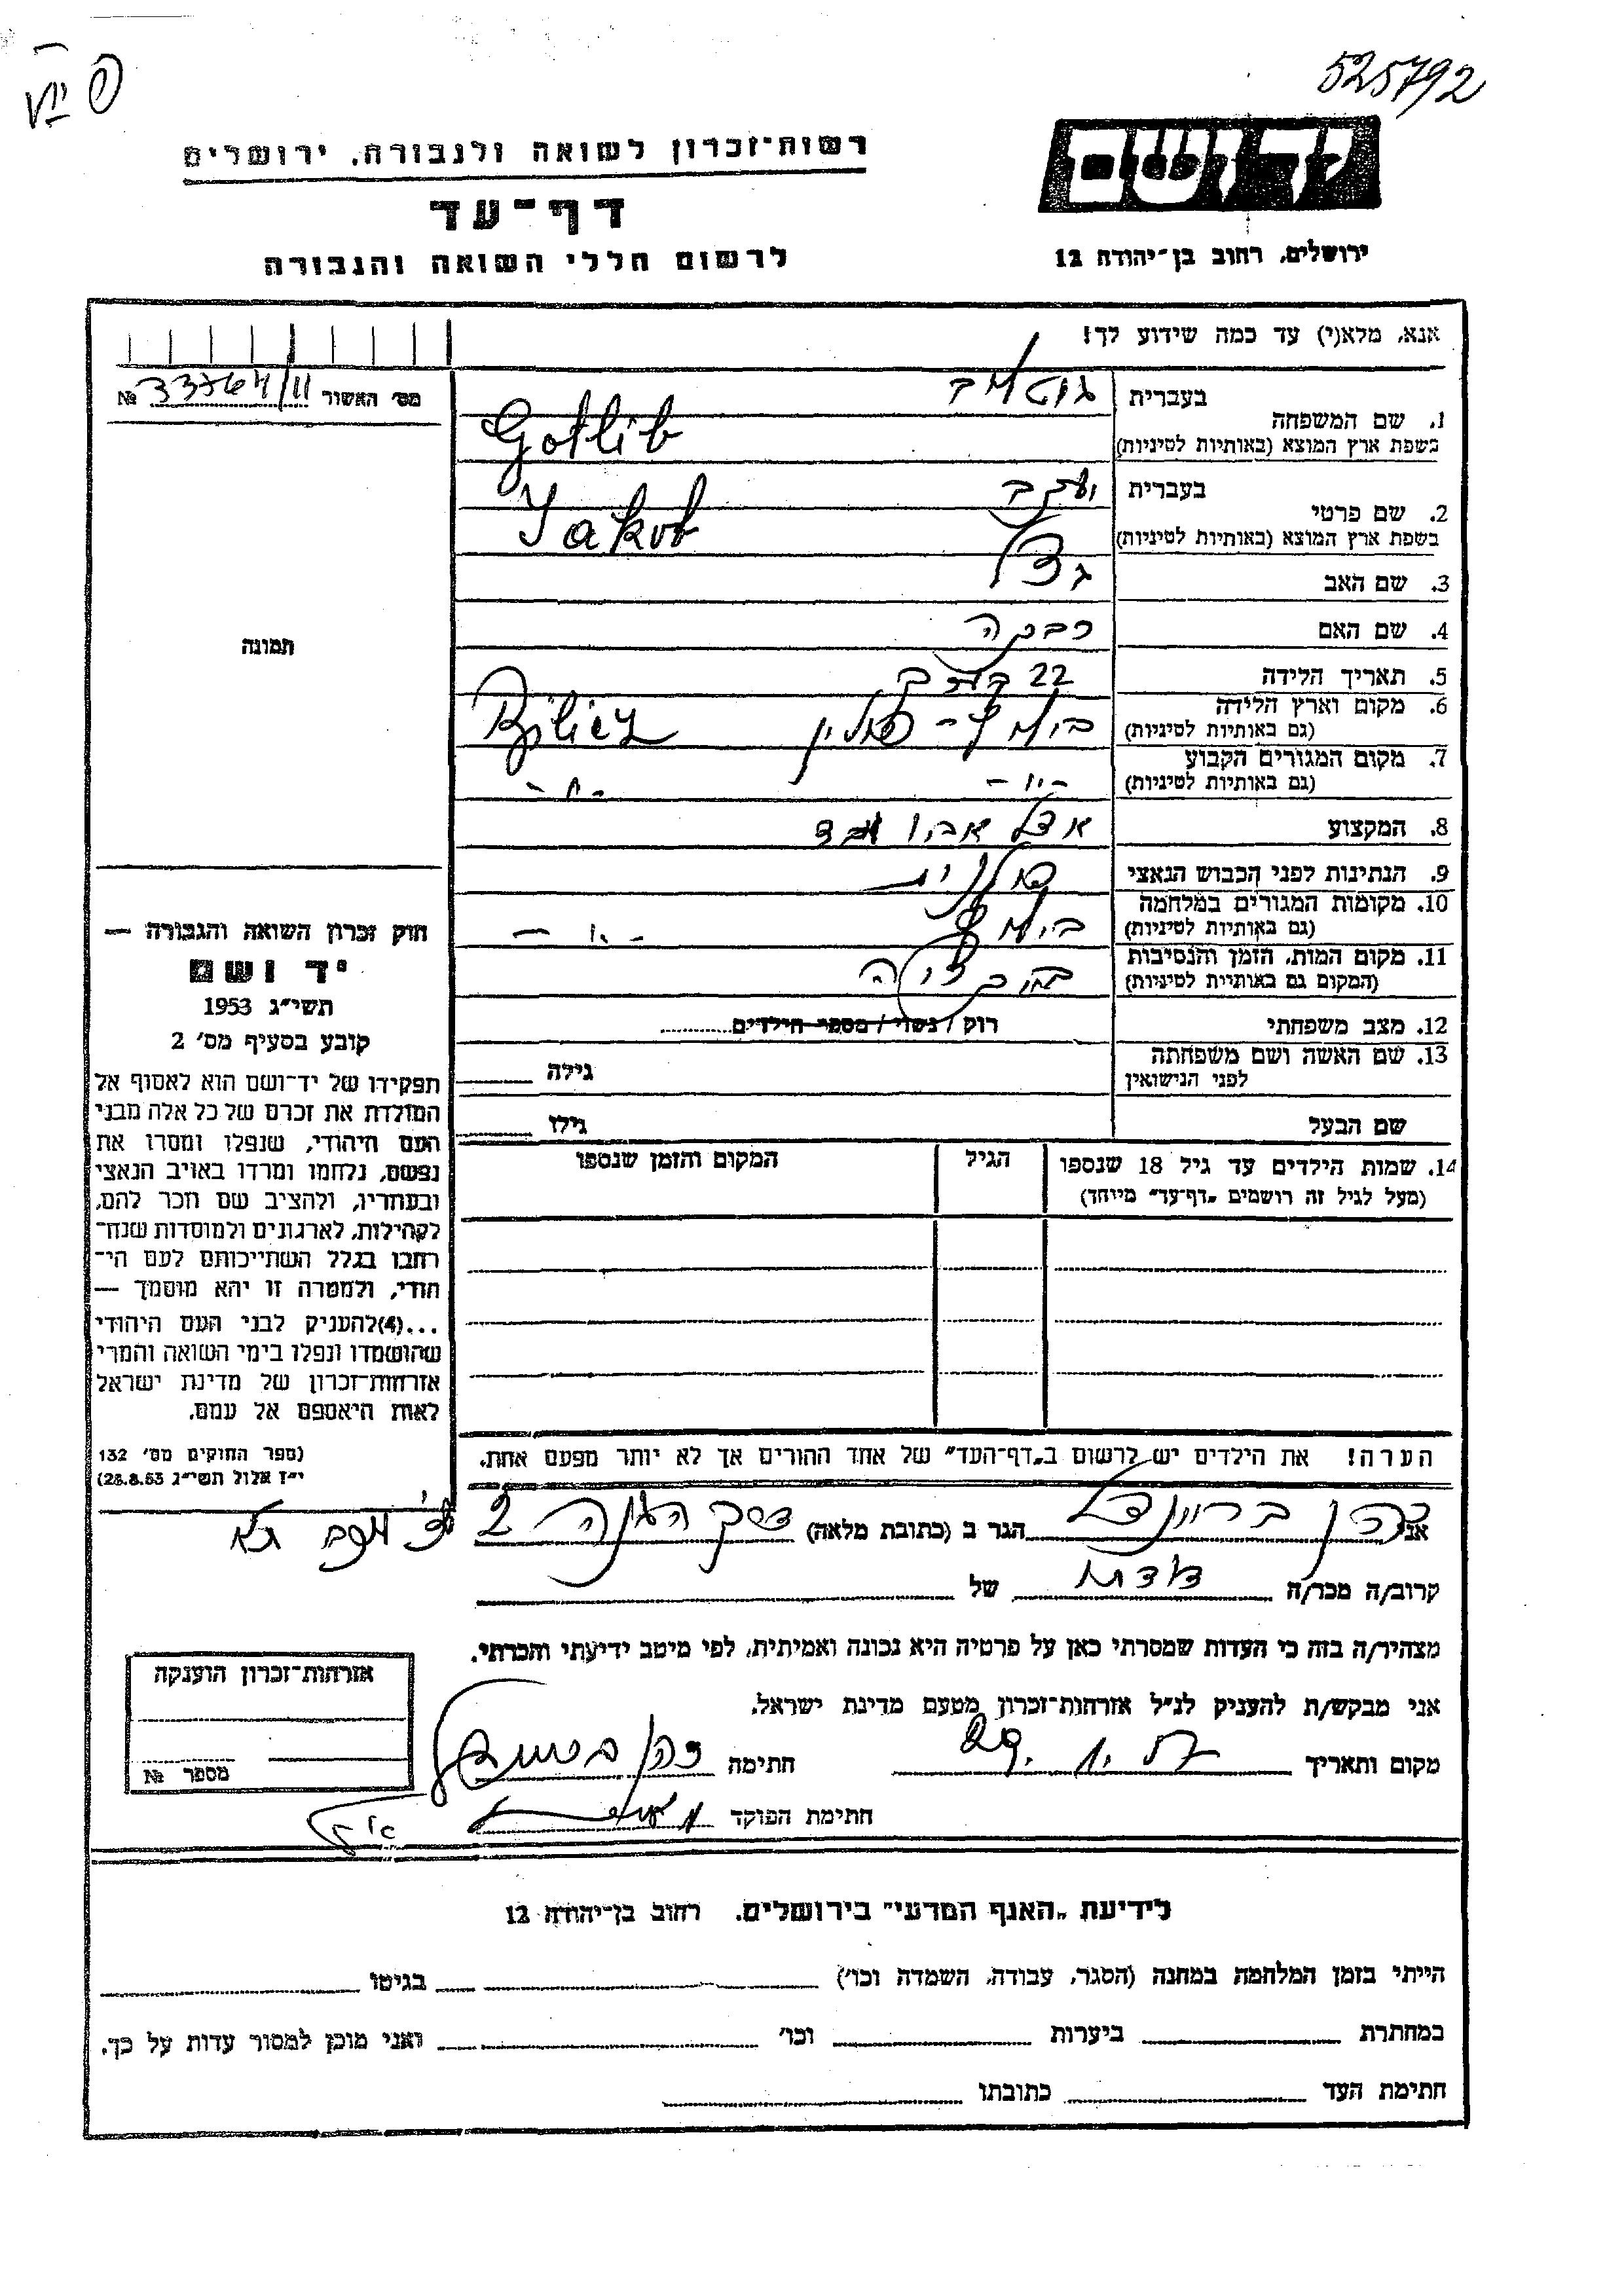 525792
יד ושם
ירושלים, רחוב בן־יהודה 12
רשות־זכרון לשואה ולגבורה, ירושלים
דף־עד
לרשום חללי השואה והגבורה
אנא, מלא(י) עד כמה שידוע לך!
מס׳ האשור 33764/11 №
תמונה
1. שם המשפחה
בעברית גוטליב
בשפת ארץ המוצא (באותיות לטיניות) Gotlib
2. שם פרטי
בעברית יעקב
בשפת ארץ המוצא (באותיות לטיניות) Jakob
3. שם האב
4. שם האם רבקה
5. תאריך הלידה 22
6. מקום וארץ הלידה
(גם באותיות לטיניות) - פולין
7. מקום המגורים הקבוע
(גם באותיות לטיניות) -"- -"-
8. המקצוע אצל אביו עבד
9. הנתינות לפני הכבוש הנאצי פולנית
10. מקומות המגורים במלחמה
(גם באותיות לטיניות) -"-
11. מקום המות, הזמן והנסיבות
(המקום גם באותיות לטיניות)
12. מצב משפחתי רוק / נשוי / מספר הילדים
13. שם האשה ושם משפחתה
לפני הנישואין גילה
שם הבעל גילו
14. שמות הילדים עד גיל 18 שנספו
(מעל לגיל זה רושמים „דף־עד" מיוחד)
הגיל
המקום והזמן שנספו
חוק זכרון השואה והגבורה —
יד ושם
תשי״ג 1953
קובע בסעיף מס׳ 2
תפקידו של יד־ושם הוא לאסוף אל
המולדת את זכרם של כל אלה מבני
העם היהודי, שנפלו ומסרו את
נפשם, נלחמו ומרדו באויב הנאצי
ובעוזריו, ולהציב שם וזכר להם,
לקהילות, לארגונים ולמוסדות שנח־
רחבו בגלל השתייכותם לעם הי־
הודי, ולמטרה זו יהא מוסמך —
...(4)להעניק לבני העם היהודי
שהושמדו ונפלו בימי השואה והמרי
אזרחות־זכרון של מדינת ישראל
לאות היאספם אל עמם.
(ספר החוקים מס׳ 132
י״ז אלול תשי״ג 28.8.53)
הערה! את הילדים יש לרשום ב„דף־העד" של אחד ההורים אך לא יותר מפעם אחת.
אני כהן הגר ב (כתובת מלאה) ההגנה 2
קרוב/ה מכר/ה דודתו של
מצהיר/ה בזה כי העדות שמסרתי כאן על פרטיה היא נכונה ואמיתית, לפי מיטב ידיעתי והכרתי.
אני מבקש/ת להעניק לנ״ל אזרחות־זכרון מטעם מדינת ישראל.
מקום ותאריך חתימה כהן
חתימת הפוקד
אזרחות־זכרון הוענקה
מספר №
לידיעת „האגף המדעי" בירושלים. רחוב בן־יהודה 12
הייתי בזמן המלחמה במחנה (הסגר, עבודה, השמדה וכו׳) בגיטו
במחתרת ביערות וכו׳ ואני מוכן למסור עדות על כך.
חתימת העד כתובתו